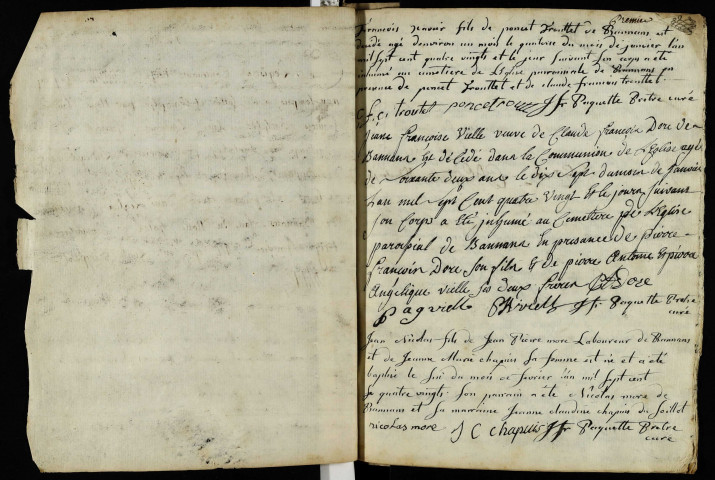 Premier
françois xavier fils de poncet Trouttet de Bannans est
décédé agé denviron un mois le quinzieme du mois de janvier l'an
mil sept cent quatre vingts et le jour suivant son corps a été
inhumé au cimetiere de L'église paroissiale de Bannans en
presence de poncet Trouttet et de claude françois trouttet
f. c. troutet poncet trouttet J fr Paquette Pretre curé
jeane françoise Vielle veuve de Claude françoin Dore de
Bannans Est décédé dans la Communion de L'Eglise agé
de soixante deux ans le dix sept du mois de Janvier
Lan mil sept Cent quatre Vingt Et le jours suivant
son Corps a Eté jnhumé au Cemettere de L'Eglise
paroisial de Bannans En presance de pierre
françoin Dore son fils Et de pierre Antoine Et pierre
Angélique vielle ses deux freres Dore
P a g vielle Vielle J fr Paquette Pretre
curé
Jean Nicolas fils de Jean Pierre more Laboureur de Bannans
et de Jeanne Marie chapuis sa femme est né et a été
baptisé le six du mois de fevrier l'an mil sept cent
quatre vingts son parrain a été Nicolas more de
Bannans et sa marraine Jeanne claudine chapuis du Soillot
nicolas more J C chapuis J fr Paquette Pretre
curé